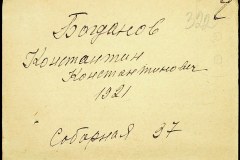 Богданов
Константин
Константинович
1921
Соборная 37